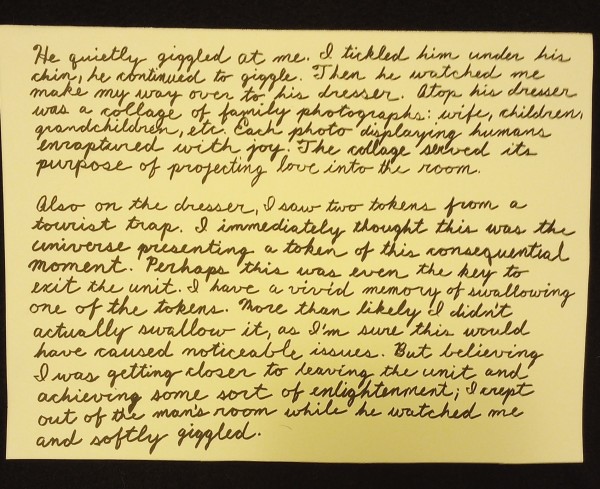 He quietly giggled at me. I tickled him under his
chin, he continued to giggle. Then he watched me
make my way over to his dresser. Atop his dresser
was a collage of family photographs: wife, children,
grandchildren, etc. Each photo displaying humans
enraptured with joy. The collage served its
purpose of projecting love into the room.

Also on the dresser, I saw two tokens from a
tourist trap. I immediately thought this was the
universe presenting a token of this consequential
moment. Perhaps this was even the key to
exit the unit. I have a vivid memory of swallowing
one of the tokens. More than likely I didn't
actually swallow it, as I'm sure this would
have caused noticeable issues. But believing
I was getting closer to leaving the unit and
achieving some sort of enlightenment; I crept
out of the man's room while he watched me
and softly giggled.